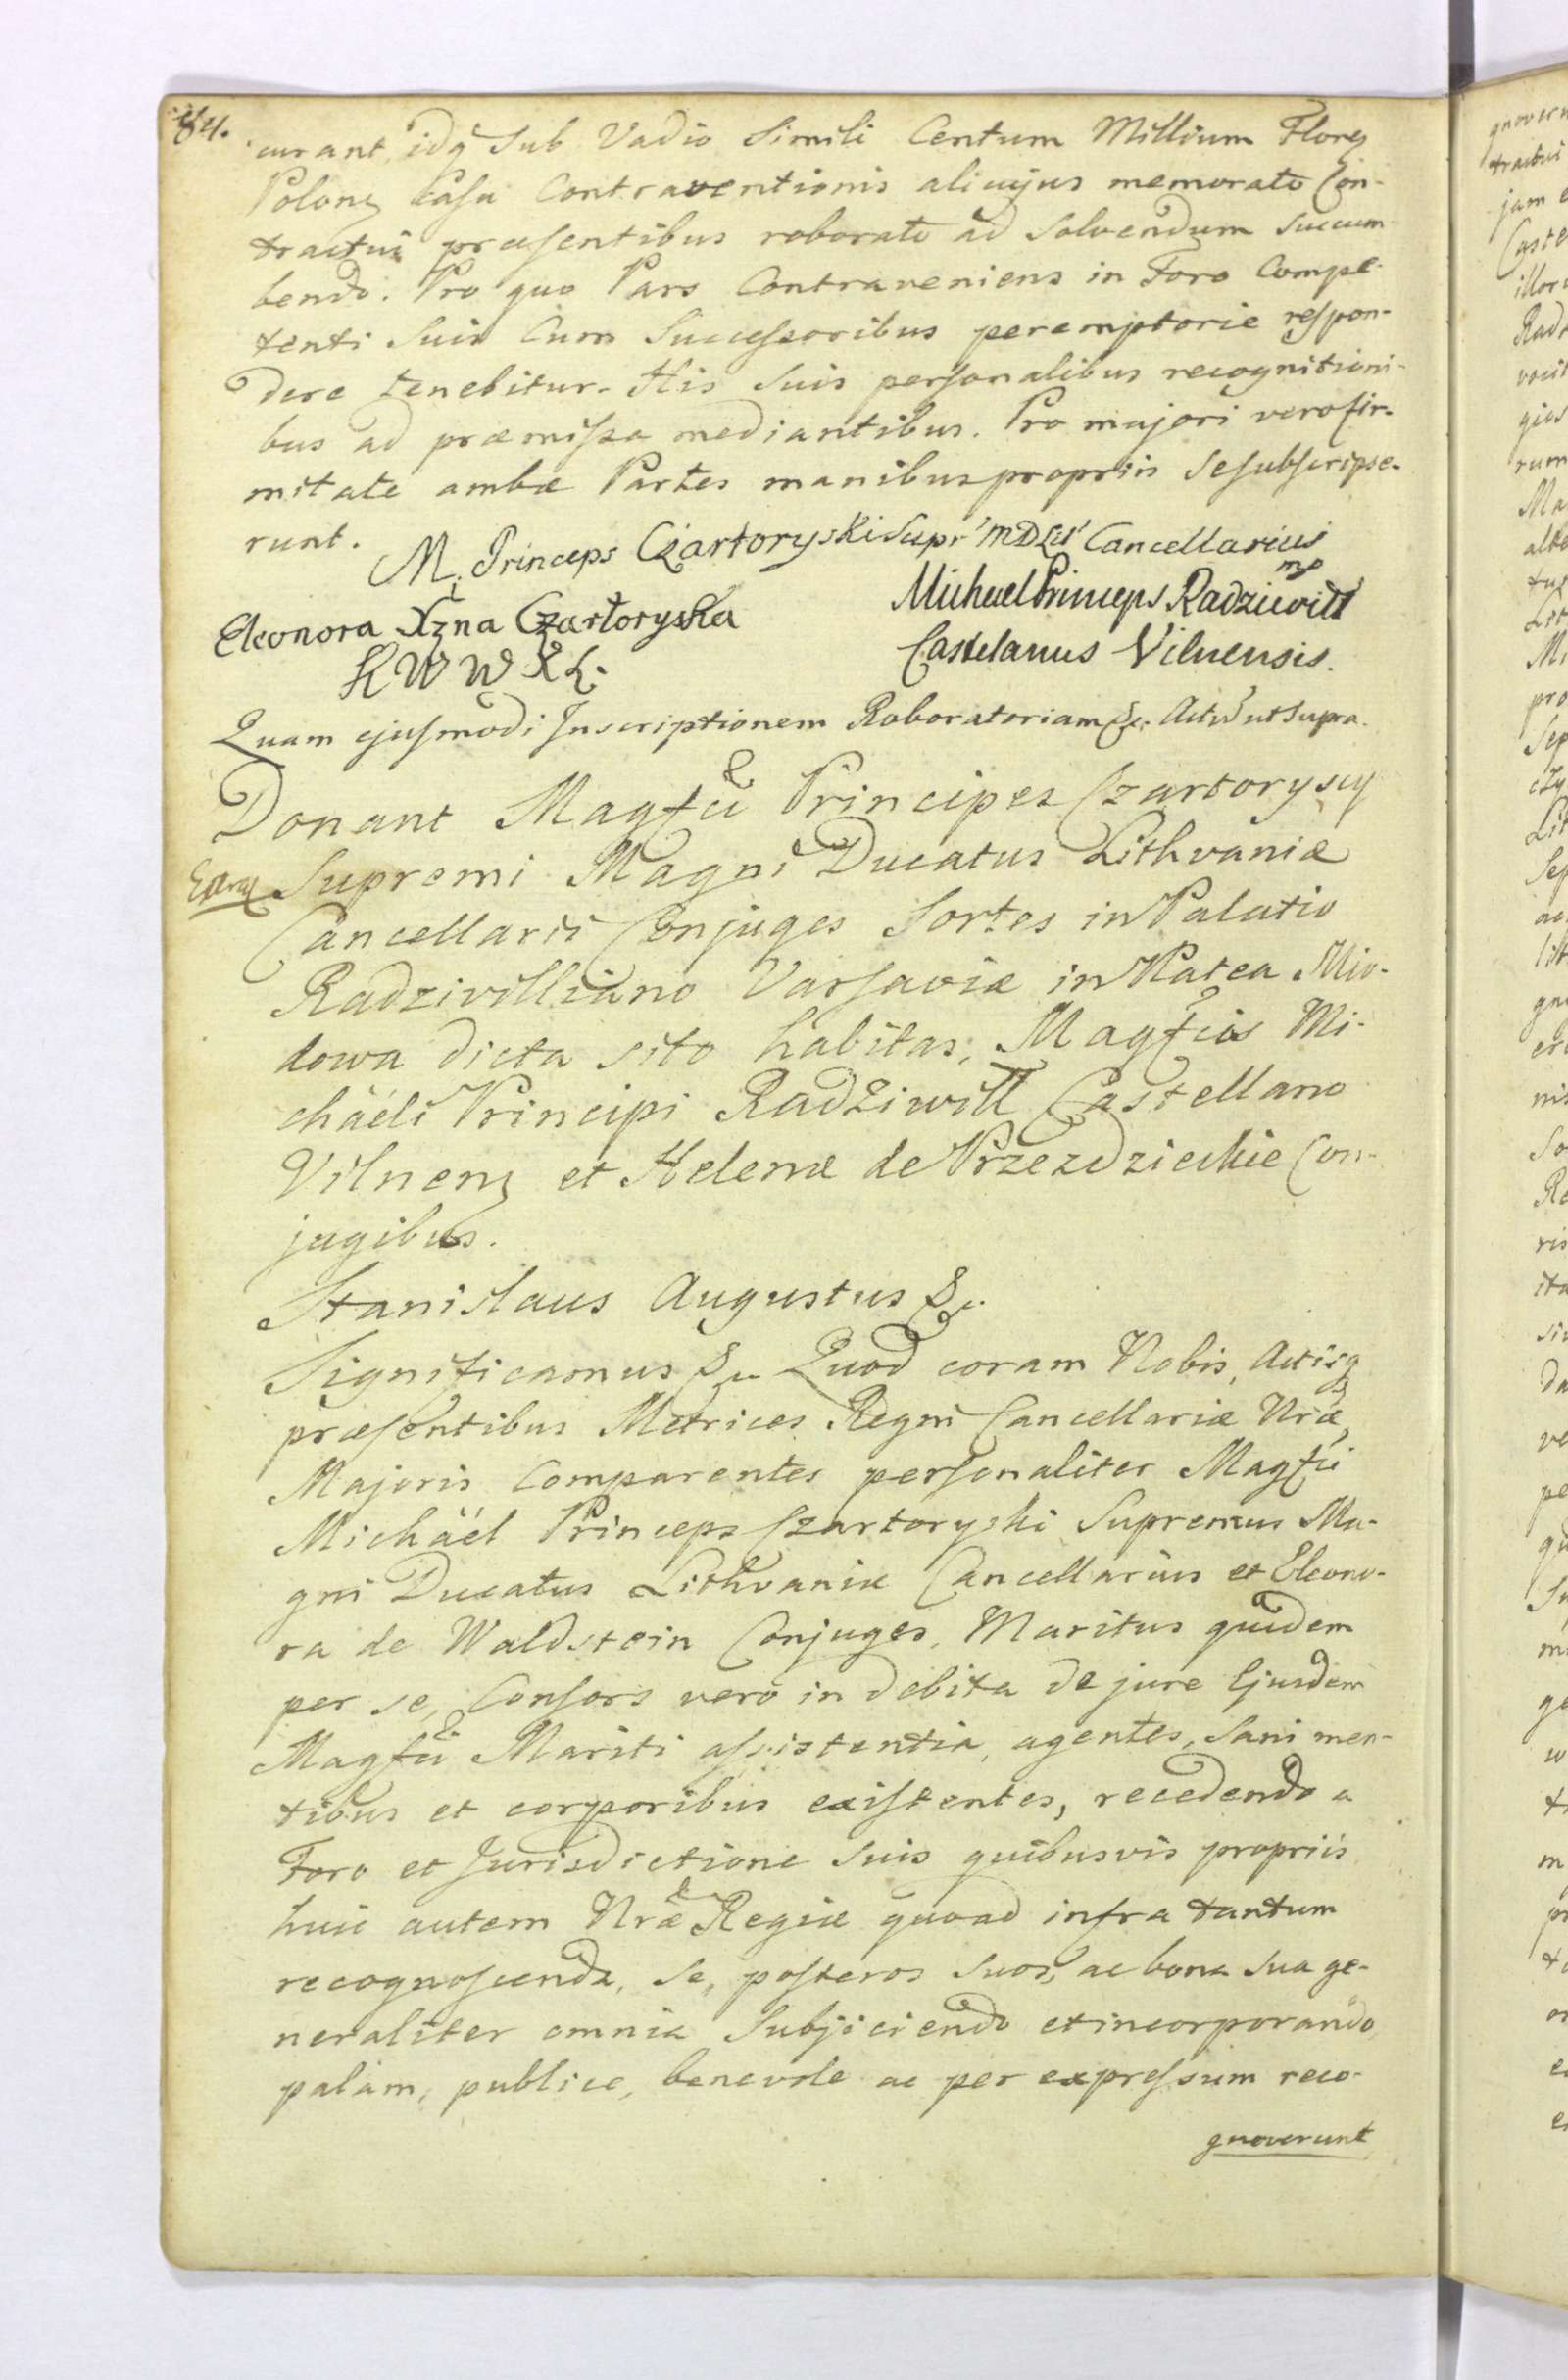 84.
curant, idq Sub Vadio Simili Centum Millium Floreɳ
Poloneɳ Casu Contraventionis alicujus memorato Con-
tractui præsentibus roborato ad Solvendum Succum-
bendo. Pro quo Pars Contraveniens in Foro Compe-
tenti Suis Cum Successoribus peremptorie respon-
dere tenebitur. His Suis personalibus recognitioni-
bus ad præmissa mediantibus. Pro majori vero fir-
mitate ambæ Partes manibus propriis Se subscripse-
runt.
M. Princeps Czartoryski Supr MDLit Cancellarius
mp
Eleonora Xzna Czartoryska
K W W X L.
Michael Princeps Radziwill
Castelanus Vilnensis.
Quam ejusmodi Inscriptionem Roboratoriam &c. Actũ ut Supra.
Donant Magfci Principes Czartoryscy
Supremi Magni Ducatus Lithvaniæ
Cancellarii Conjuges Sortes in Palatio
Radzivilliano Varsaviæ in Platea Mio-
dowa dicta sito habitas, Magfcis Mi-
chäeli Principi Radziwill Castellano
Vilneɳ et Helenæ de Przezdzieckie Con-
jugibus.
Stanislaus Augustus &c.
Significamus &c. Quod coram Nobis, Actisq
præsentibus Metrices Regni Cancellariæ Nræ,
Majoris Comparentes personaliter Magfci
Michäel Princeps Czartoryski Supremus Ma-
gni Ducatus Lithvaniæ Cancellarius et Eleono-
ra de Waldstein Conjuges, Maritus quidem
per se, Consors vero in debita de jure Ejusdem
Magfci Mariti assistentia, agentes, Sani men-
tibus et corporibus existentes, recedendo a
Foro et Jurisdictione Suis quibusvis propriis
huic autem Nræ Regiæ quoad infra tantum
recognoscenda, Se, posteros Suos, ac bona Sua ge-
neraliter omnia Subjiciendo et incorporando
palam, publice, benevole ac per expressum reco-
gnoverunt